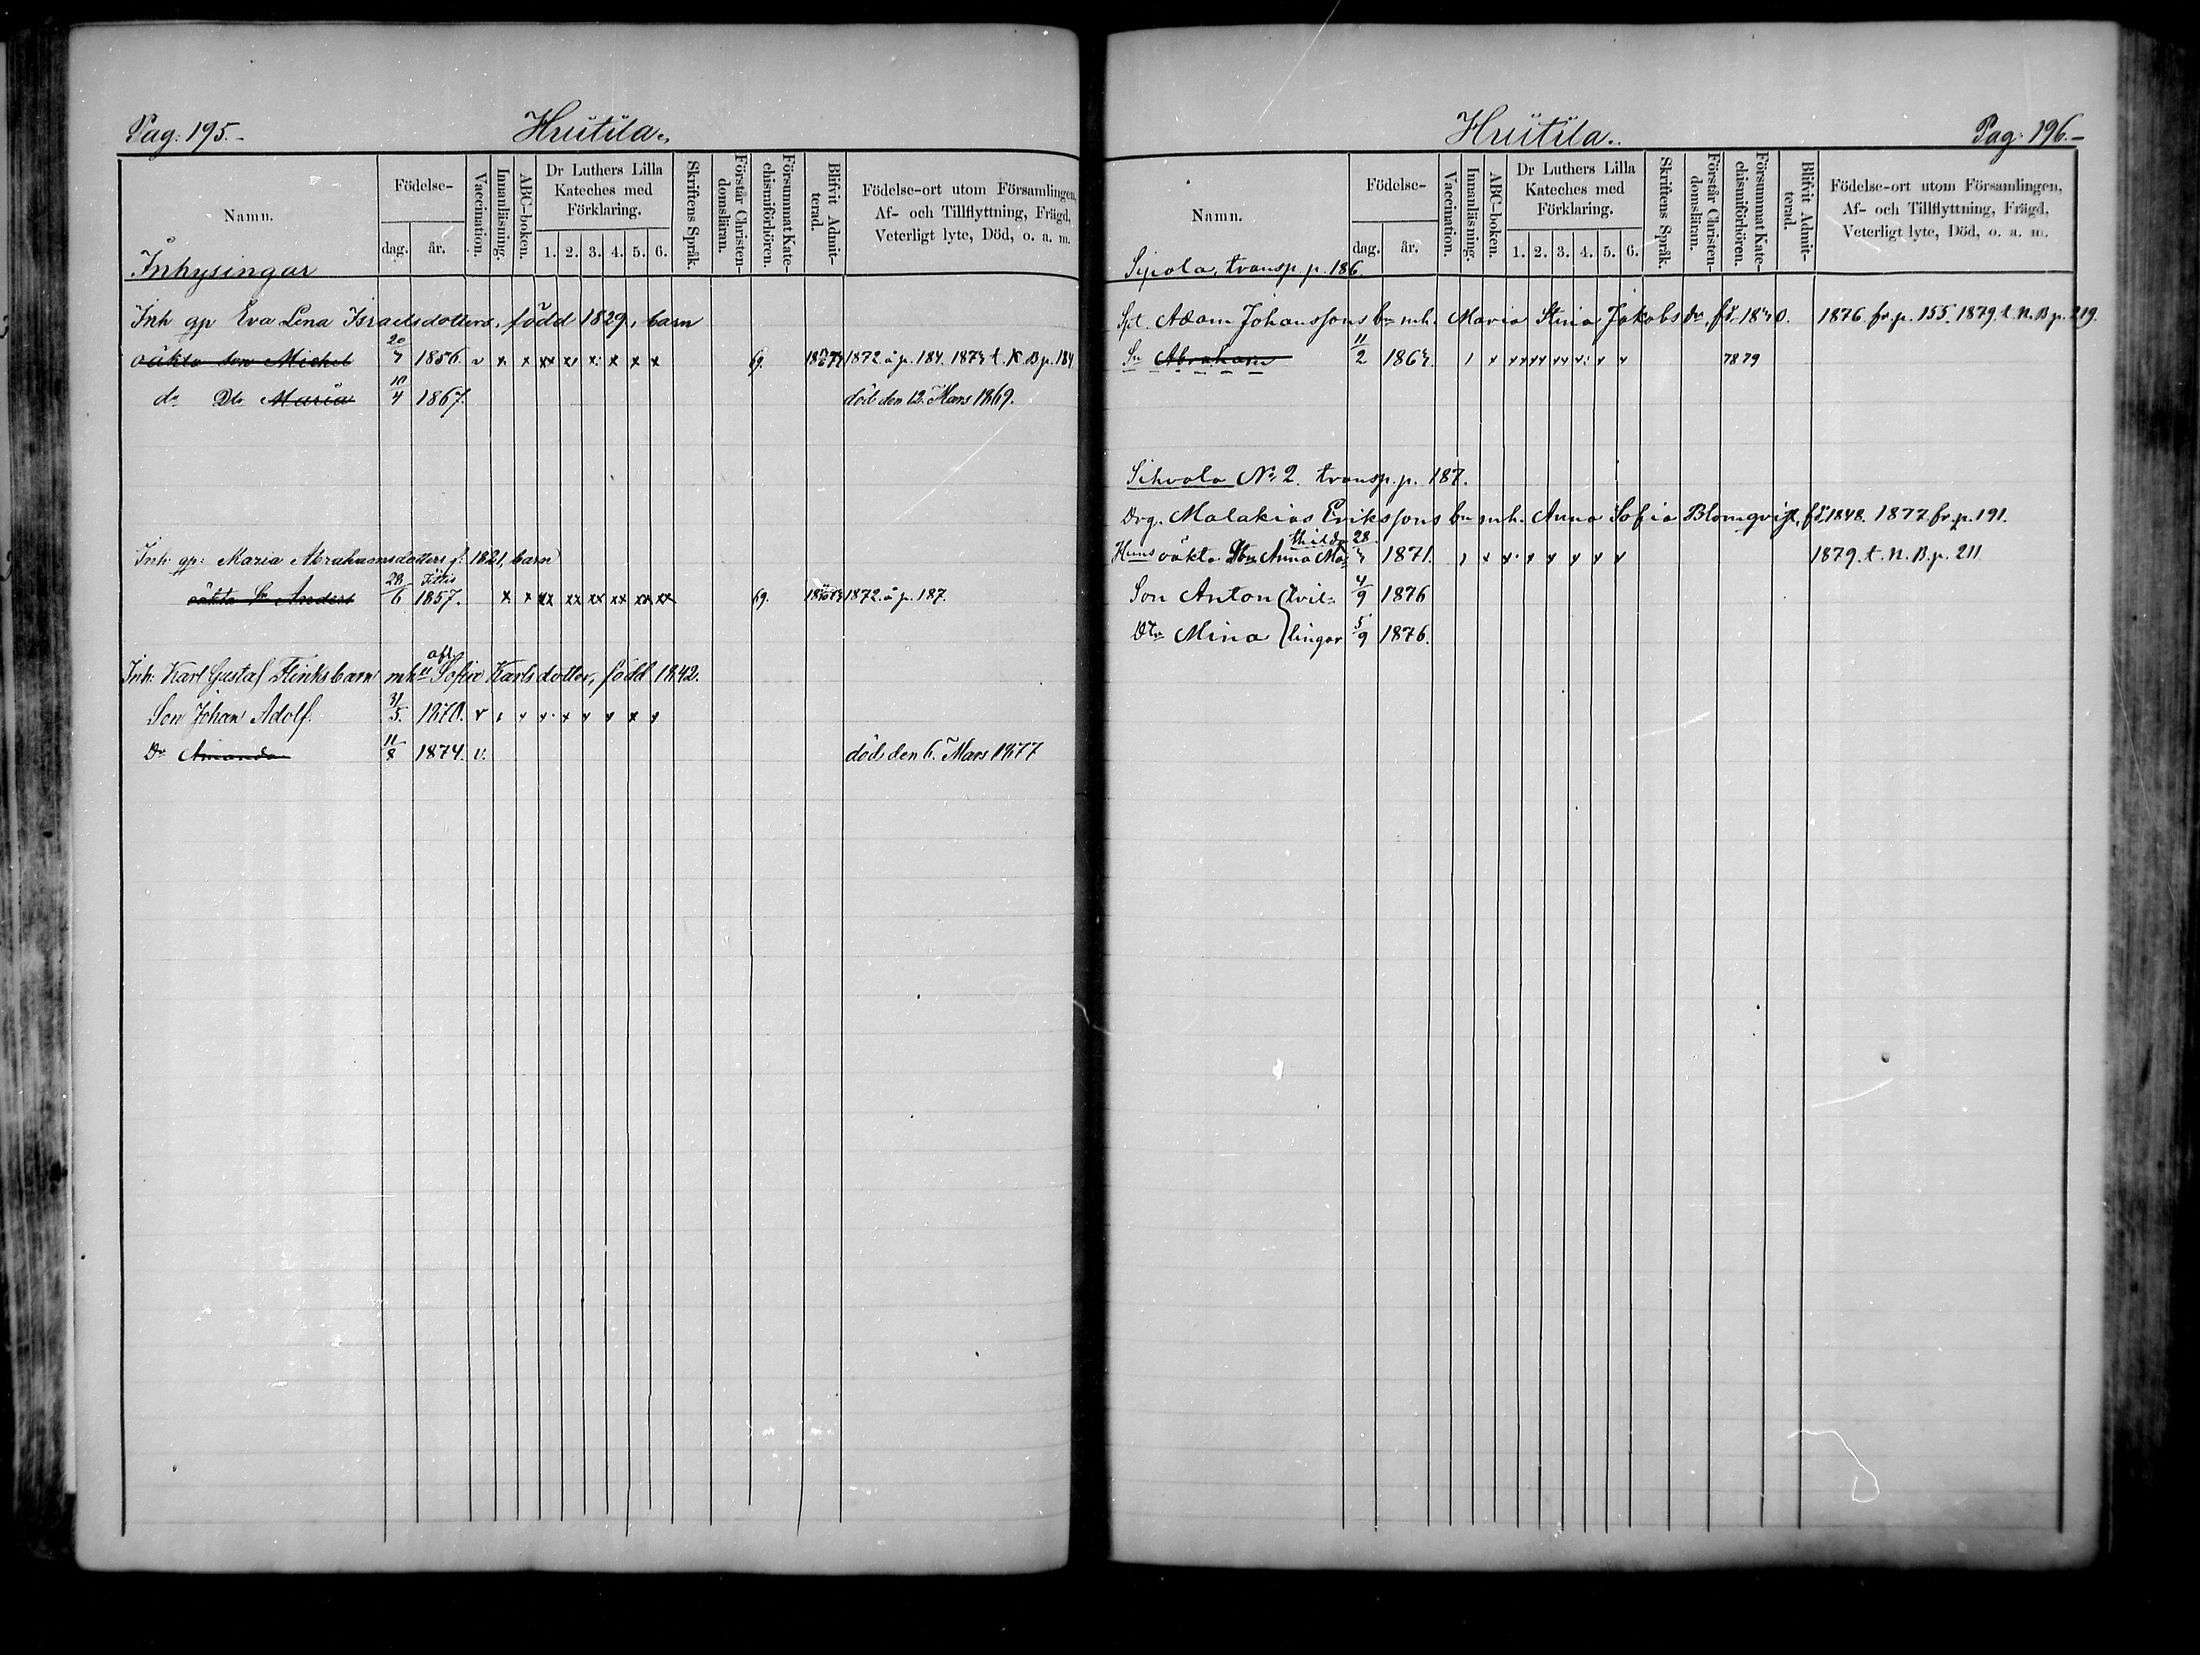 Pag: 195.-
Huitila.
Namn.
Födelse-
dag.
år.
Vaccination.
Innanläsning.
ABC-boken.
Dr Luthers Lilla Kateches med Förklaring.
1. 2. 3. 4. 5. 6.
Skriftens Språk.
Förstår Christendomsläran.
Försummat Katechismiförhören.
Blifvit Admitterad.
Födelse-ort utom Församlingen, Af- och Tillflyttning, Frägd, Veterligt lyte, Död, o. a. m.
Inhysingar
Inh gp Eva Lena Israelsdotters, född 1829, barn
oäkta son Michel 1856. v x x xx xx x x x x 69. 1872 å p. 184. 1873 t. K. B p. 184
do Dtr Maria 10/4 1867. död den 12. Mars 1869.
Inh. gp: Maria Abrahamsdotters f. 1821, barn
oäkta Sn Anders 28/6 1857. x x xx xx xx xx xx xx 69. 1872 å p. 187.
Inh. Karl Gustaf Flinks barn mh afl. Sofia Karlsdotter, född 1842.
Son Johan Adolf. 1870. v
Dr Amanda 11/8 1874. v. död den 6. Mars 1877
Huitila.
Pag: 196.-
Namn.
Födelse-
dag.
år.
Vaccination.
Innanläsning.
ABC-boken.
Dr Luthers Lilla Kateches med Förklaring.
1. 2. 3. 4. 5. 6.
Skriftens Språk.
Förstår Christendomsläran.
Försummat Katechismiförhören.
Blifvit Admitterad.
Födelse-ort utom Församlingen, Af- och Tillflyttning, Frägd, Veterligt lyte, Död, o. a. m.
Sipola, transp. p. 186
Adam Johanssons bn mh. Maria Stina Jakobsdr, 1876 fr. p. 155. 1879 t. N. B p. 219.
Sn Abraham 11/2 78 79
Sihvola No 2. transp. p. 187.
Drg. Malakias Erikssons bn mh. Anna Sofia Blomqvist, f. 1848. 1877 fr. p. 191.
Hans oäkta Dtr Anna Mathilda 1871. 1879. t. N. B. p. 211
Son Anton tvil- 4/9 1876
Dtr Mina lingar 5/9 1876.